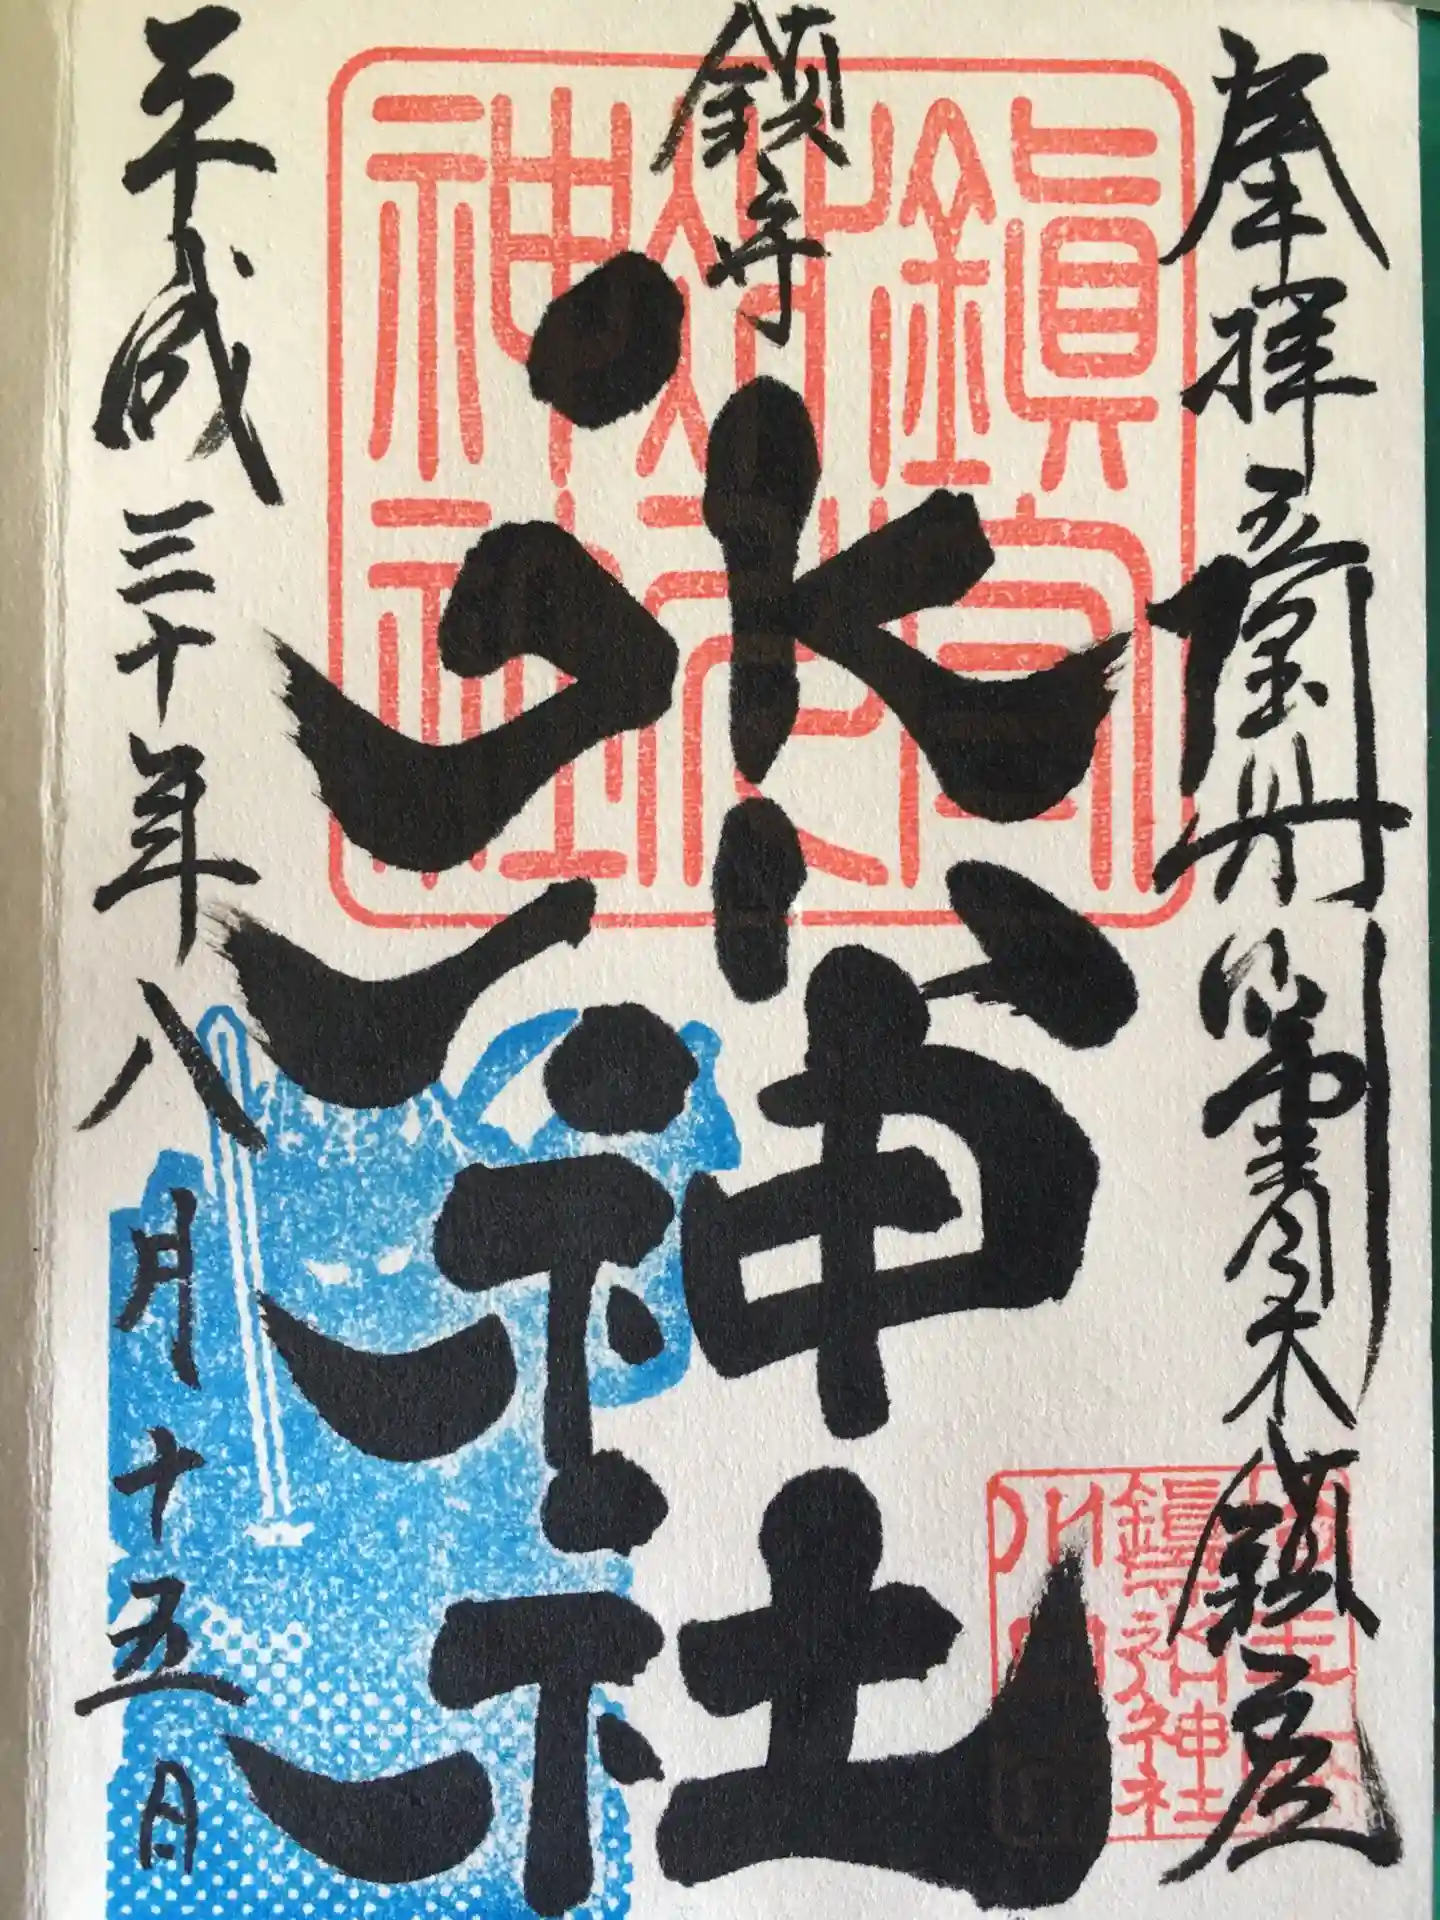 奉拝
青木鎮座
鎮守
氷川神社
平成三十年八月十五日
鎮守氷川神社
鎮守氷川神社